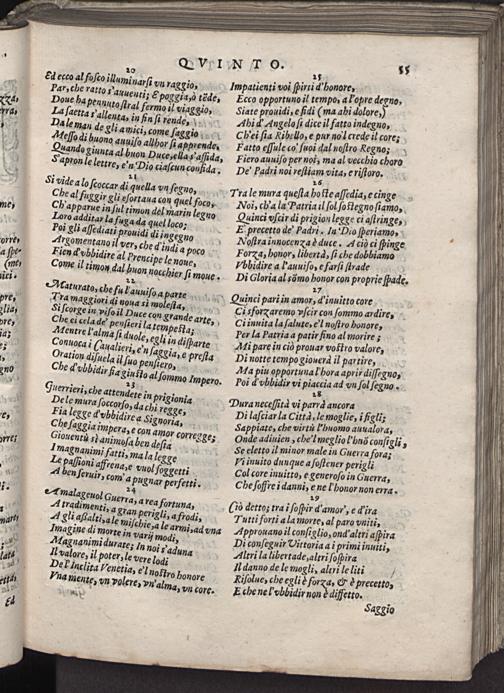 QVINTO.
55
20
Ed ecco al fosco illuminarsi vn raggio,
Par, che ratto s'auuenti; E poggia, ò tẽde,
Doue ha pennuto stral fermo il viaggio,
La saetta s'allenta, in fin si rende,
Da le man de gli amici, come saggio
Messo di buono auuiso allhor si apprende,
Quando giunta al buon Duce, ella s'assida,
S'apron le lettre, e'n Dio ciascun confida.
21
Si vide a lo scoccar di quella vn segno,
Che al fuggir gli esortaua con quel foco,
Ch'apparue in sul timon del marin legno
Loro additar la fuga da quel loco;
Poi gli assediati prouidi d'ingegno
Argomentano il ver, che d'indi a poco
Fien d'vbbidire al Prencipe le noue,
Come il timon dal buon nocchier si moue.
22
Maturato, che fu l'auuiso a parte
Tra maggiori di noua sì molesta,
Si scorge in viso il Duce con grande arte,
Che ci cela de' pensieri la tempesta;
Mentre l'alma si duole, egli in disparte
Conuoca i Caualieri, e'n saggia, e presta
Oration disuela il suo pensiero,
Che d'vbbidir sia giusto al sommo Impero.
23
Guerrieri, che attendete in prigionia
De le mura soccorso, da chi regge,
Fia legge d'vbbidire a Signoria,
Che saggia impera, e con amor corregge;
Giouentù sì animosa ben desta
I magnanimi fatti, ma la legge
Le passioni affrena, e vuol soggetti
A ben seruir, com'a pugnar perfetti.
24
A malageuol Guerra, a rea fortuna,
A tradimenti, a gran perigli, a frodi,
A gli assalti, a le mischie, a le armi, ad vna
Imagine di morte in varij modi,
Magnanimi durate; In noi s'aduna
Il valore, il poter, le vere lodi
De l'Inclita Venetia, e'l nostro honore
Vna mente, vn volere, vn'alma, vn core.
25
Impatienti voi spirti d'honore,
Ecco opportuno il tempo, a l'opre degno,
Siate prouidi, e fidi (ma ahi dolore,)
Ahi d'Angelo si dice il fatto indegno,
Ch'ei sia Ribello, e pur no'l crede il core;
Fatto essule co' suoi dal nostro Regno;
Fiero auuiso per noi, ma al vecchio choro
De' Padri noi restiam vita, e ristoro.
26
Tra le mura questa hoste assedia, e cinge
Noi, ch'a la Patria il sol sostegno siamo,
Quinci vscir di prigion legge ci astringe,
E precetto de' Padri. In Dio speriamo,
Nostra innocenza è duce. A ciò ci spinge
Forza, honor, libertà, sì che dobbiamo
Vbbidire a l'auuiso, e farsi strade
Di Gloria al sõmo honor con proprie spade.
27
Quinci pari in amor, d'inuitto core
Ci sforzaremo vscir con sommo ardire,
Ci inuita la salute, e'l nostro honore,
Per la Patria a patir fino al morire;
Mi pare in ciò prouar vostro valore,
Di notte tempo giouerà il partire,
Ma piu opportuna l'hora aprir dissegno,
Poi d'vbbidir vi piaccia ad vn sol segno.
28
Dura necessità vi parrà ancora
Di lasciar la Città, le moglie, i figli;
Sappiate, che virtù l'huomo auualora,
Onde adiuien, che'l meglio l'huõ consigli,
Se eletto il minor male in Guerra fora;
Vi inuito dunque a sostener perigli
Col core inuitto, e generoso in Guerra,
Che soffre i danni, e ne l'honor non erra.
29
Ciò detto; tra i sospir d'amor, e d'ira
Tutti forti a la morte, al paro vniti,
Approuano il consiglio, ond'altri aspira
Di conseguir Vittoria a i primi inuiti,
Altri la libertade, altri sospira
Il danno de le mogli, altri le liti
Risolue, che egli è forza, & è precetto,
E che ne l'vbbidir non è diffetto.
Saggio